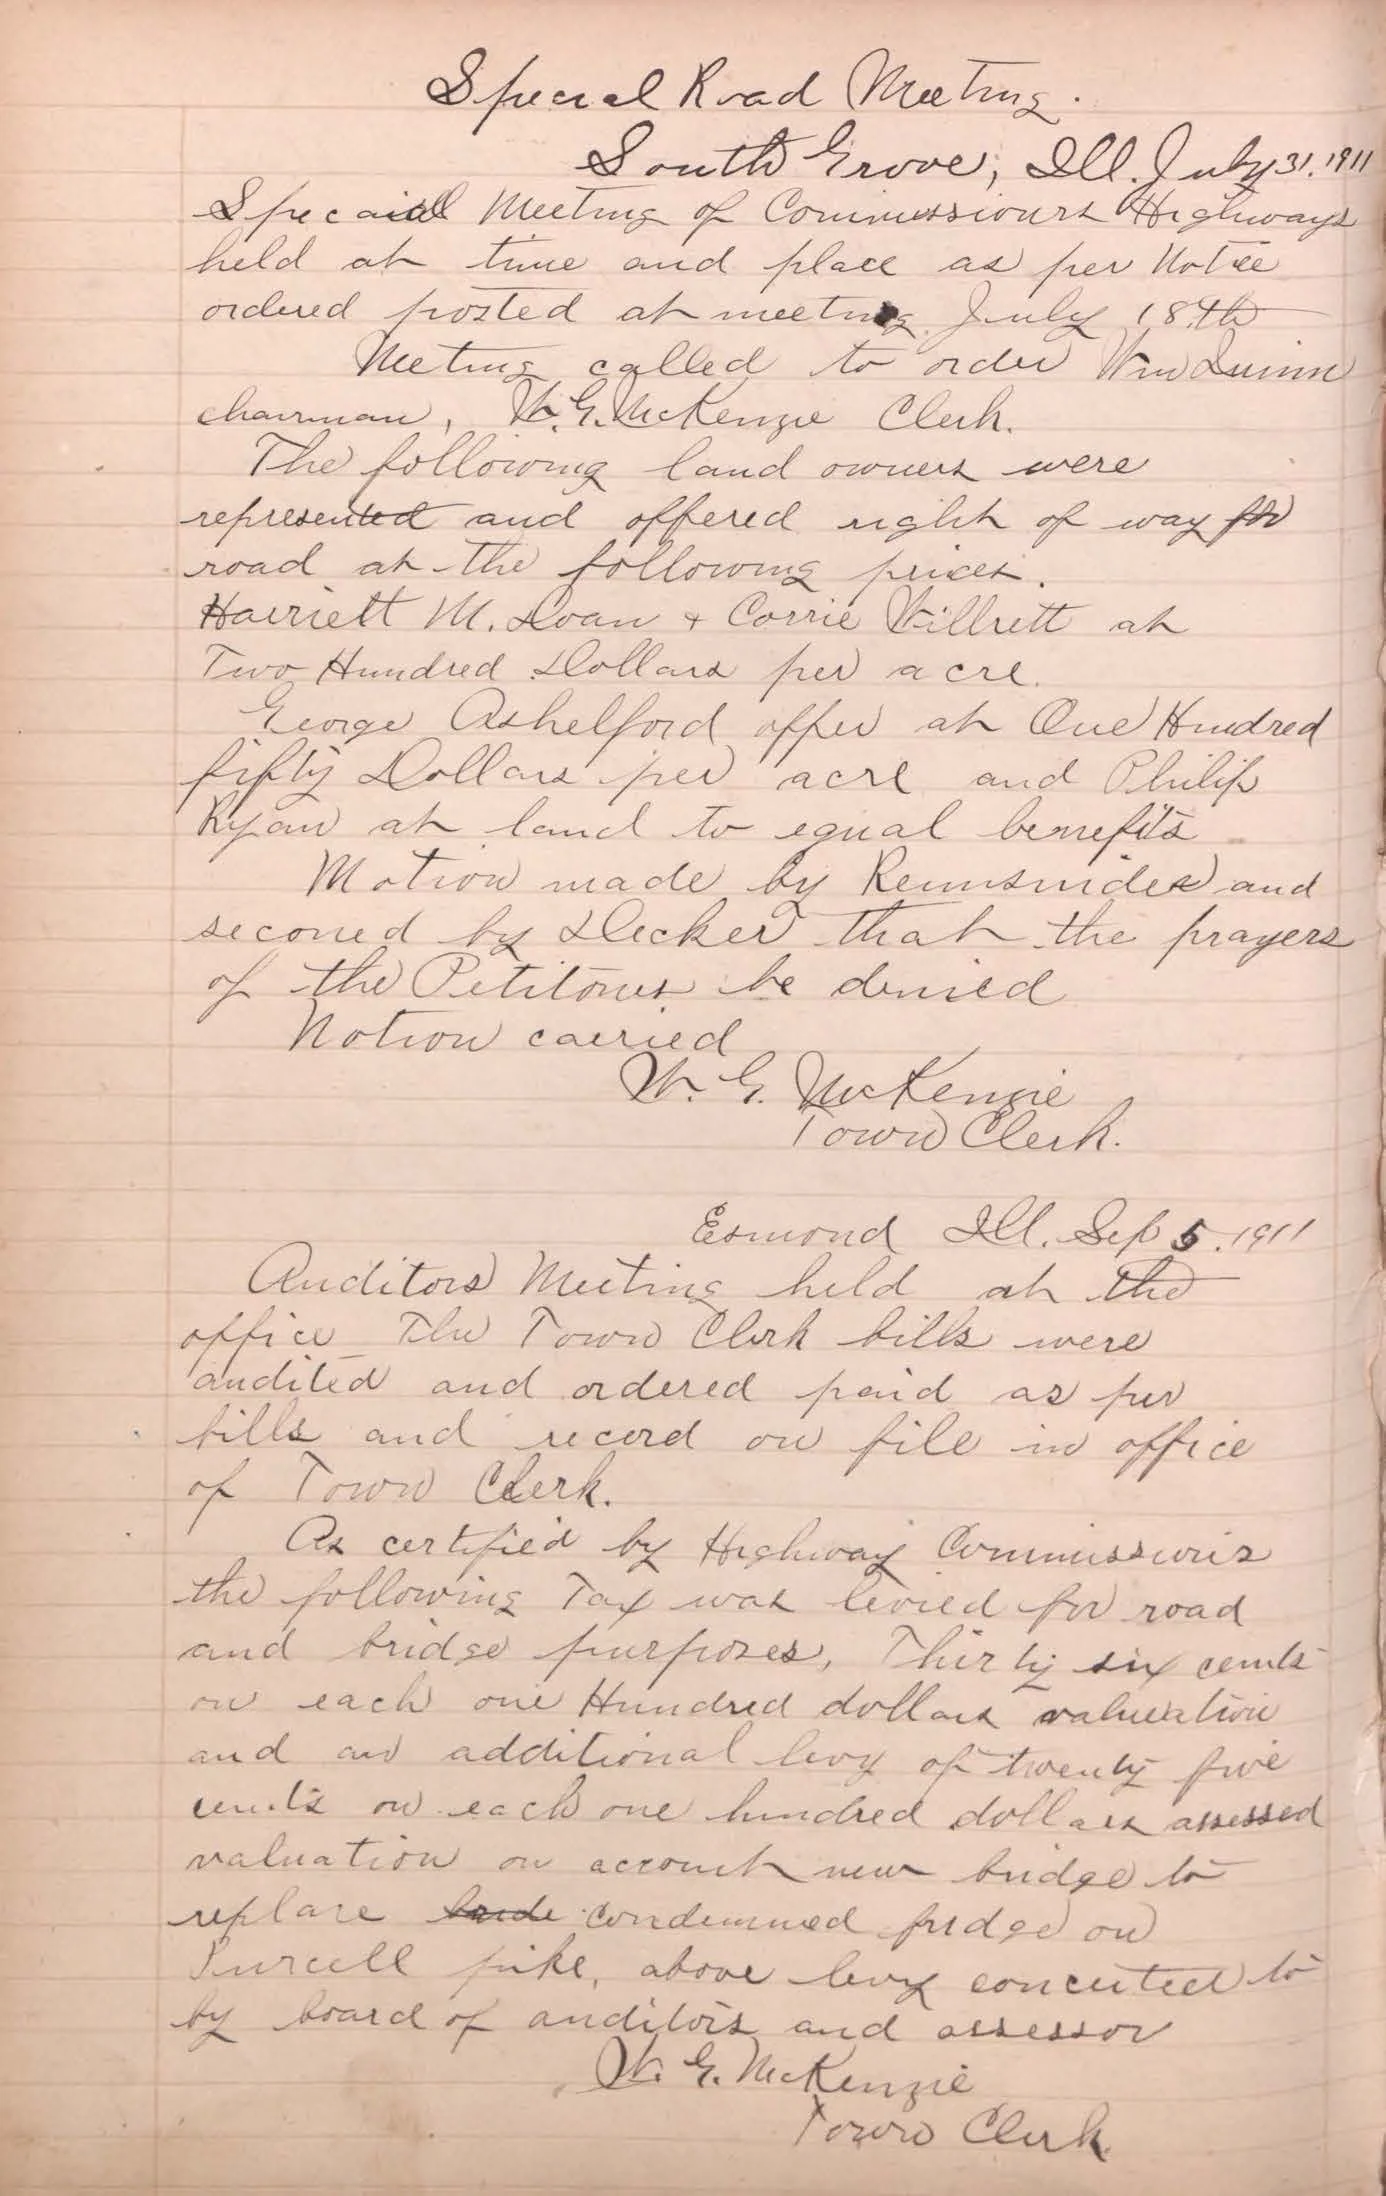 Special Road Meeting.
South Grove, Ill. July 31, 1911
Specaiall Meeting of Commissiours Highways
held at time and place as per Notice
ordered posted at meeting July 18th
Meeting called to order Wm Quinn
chairman, W. G. McKenzie Clerk.
The following land owners were
represented and offered right of way for
road at the following prices.
Harriett M. Doan + Corrie Willrett at
Two Hundred Dollars per acre.
George Ashelford offer at One Hundred
fifty Dollars per acre and Philip
Ryan at land to equal benefits
Motion made by and
seconed by Decker that the prayers
of the Petitones be denied
Motion carried
W. G. McKenzie
Town Clerk.
Esmond Ill. Sep 5. 1911
Auditors Meeting held at the
office The Town Clerk bills were
audited and ordered paid as per
bills and record on file in office
of Town Clerk.
As certified by Highway Commissioris
the following Tax was levied for road
and bridge purposes, Thirty six cents
on each one Hundred dollars valueation
and an additional levy of twenty five
cents on each one hundred dollars assessed
valuation on account new bridge to
replace condemned bridge on
Purcell pike, above levy concented to
by board of auditors and assessor
W. G. McKenzie
Town Clerk.